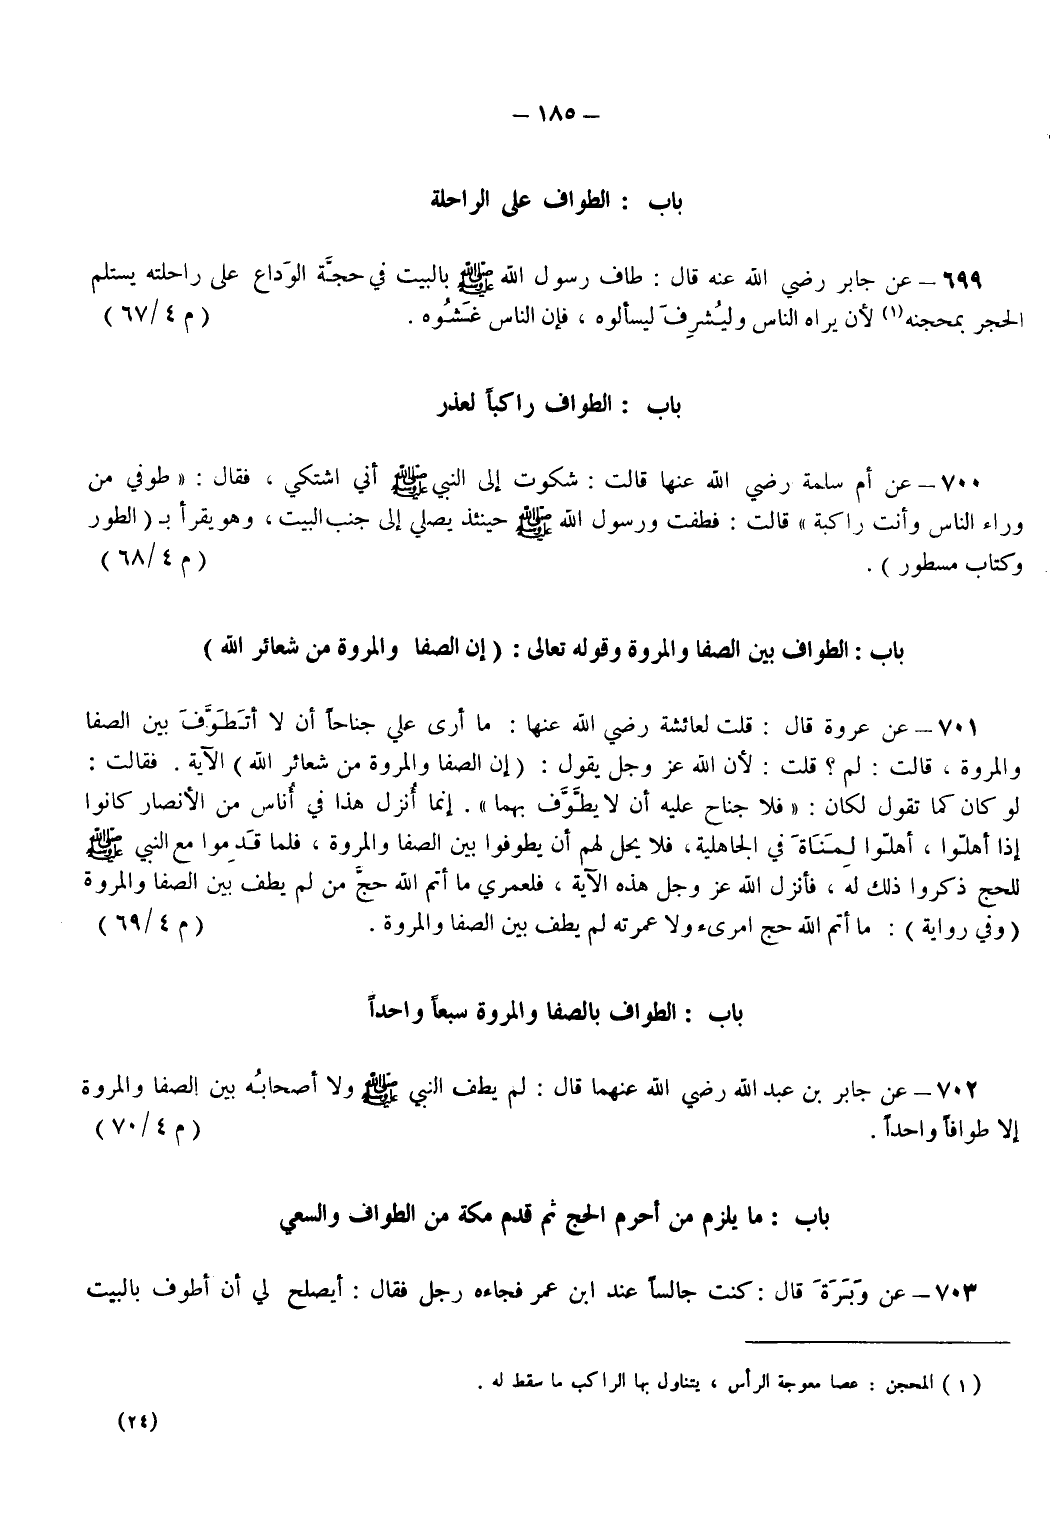 – ١٨٥ –
باب : الطواف على الراحلة
٦٩٩ – عن جابر رضي الله عنه قال : طاف رسول الله ﷺ بالبيت في حجَّة الوَداع على راحلته يستلم
الحجر بمحجنه(١) لأن يراه الناس وليُشرِفَ ليسألوه ، فإن الناس غَشُوه . ( م ٤/٦٧ )
باب : الطواف راكباً لعذر
٧٠٠ – عن أم سلمة رضي الله عنها قالت : شكوت إلى النبي ﷺ أني اشتكي ، فقال : « طوفي من
وراء الناس وأنت راكبة » قالت : فطفت ورسول الله ﷺ حينئذ يصلي إلى جنب البيت ، وهو يقرأ بـ ( الطور
وكتاب مسطور ) . ( م ٤/٦٨ )
باب : الطواف بين الصفا والمروة وقوله تعالى : ( إن الصفا والمروة من شعائر الله )
٧٠١ – عن عروة قال : قلت لعائشة رضي الله عنها : ما أرى علي جناحاً أن لا أتَطَوَّفَ بين الصفا
والمروة ، قالت : لم ؟ قلت : لأن الله عز وجل يقول : ( إن الصفا والمروة من شعائر الله ) الآية . فقالت :
لو كان كما تقول لكان : « فلا جناح عليه أن لا يطَّوَّف بهما » . إنما أُنزل هذا في أُناس من الأنصار كانوا
إذا أهلّوا ، أهلّوا لِمَنَاةَ في الجاهلية ، فلا يحل لهم أن يطوفوا بين الصفا والمروة ، فلما قَدِموا مع النبي ﷺ
للحج ذكروا ذلك له ، فأنزل الله عز وجل هذه الآية ، فلعمري ما أتم الله حجَّ من لم يطف بين الصفا والمروة
( وفي رواية ) : ما أتم الله حج امرىء ولا عمرته لم يطف بين الصفا والمروة . ( م ٤/٦٩ )
باب : الطواف بالصفا والمروة سبعاً واحداً
٧٠٢ – عن جابر بن عبد الله رضي الله عنهما قال : لم يطف النبي ﷺ ولا أصحابُه بين الصفا والمروة
إلا طوافاً واحداً . ( م ٤/٧٠ )
باب : ما يلزم من أحرم الحج ثم قدم مكة من الطواف والسعي
٧٠٣ – عن وَبَرَةَ قال : كنت جالساً عند ابن عمر فجاءه رجل فقال : أيصلح لي أن أطوف بالبيت
( ١ ) المحجن : عصا معوجة الرأس ، يتناول بها الراكب ما سقط له .
(٢٤)